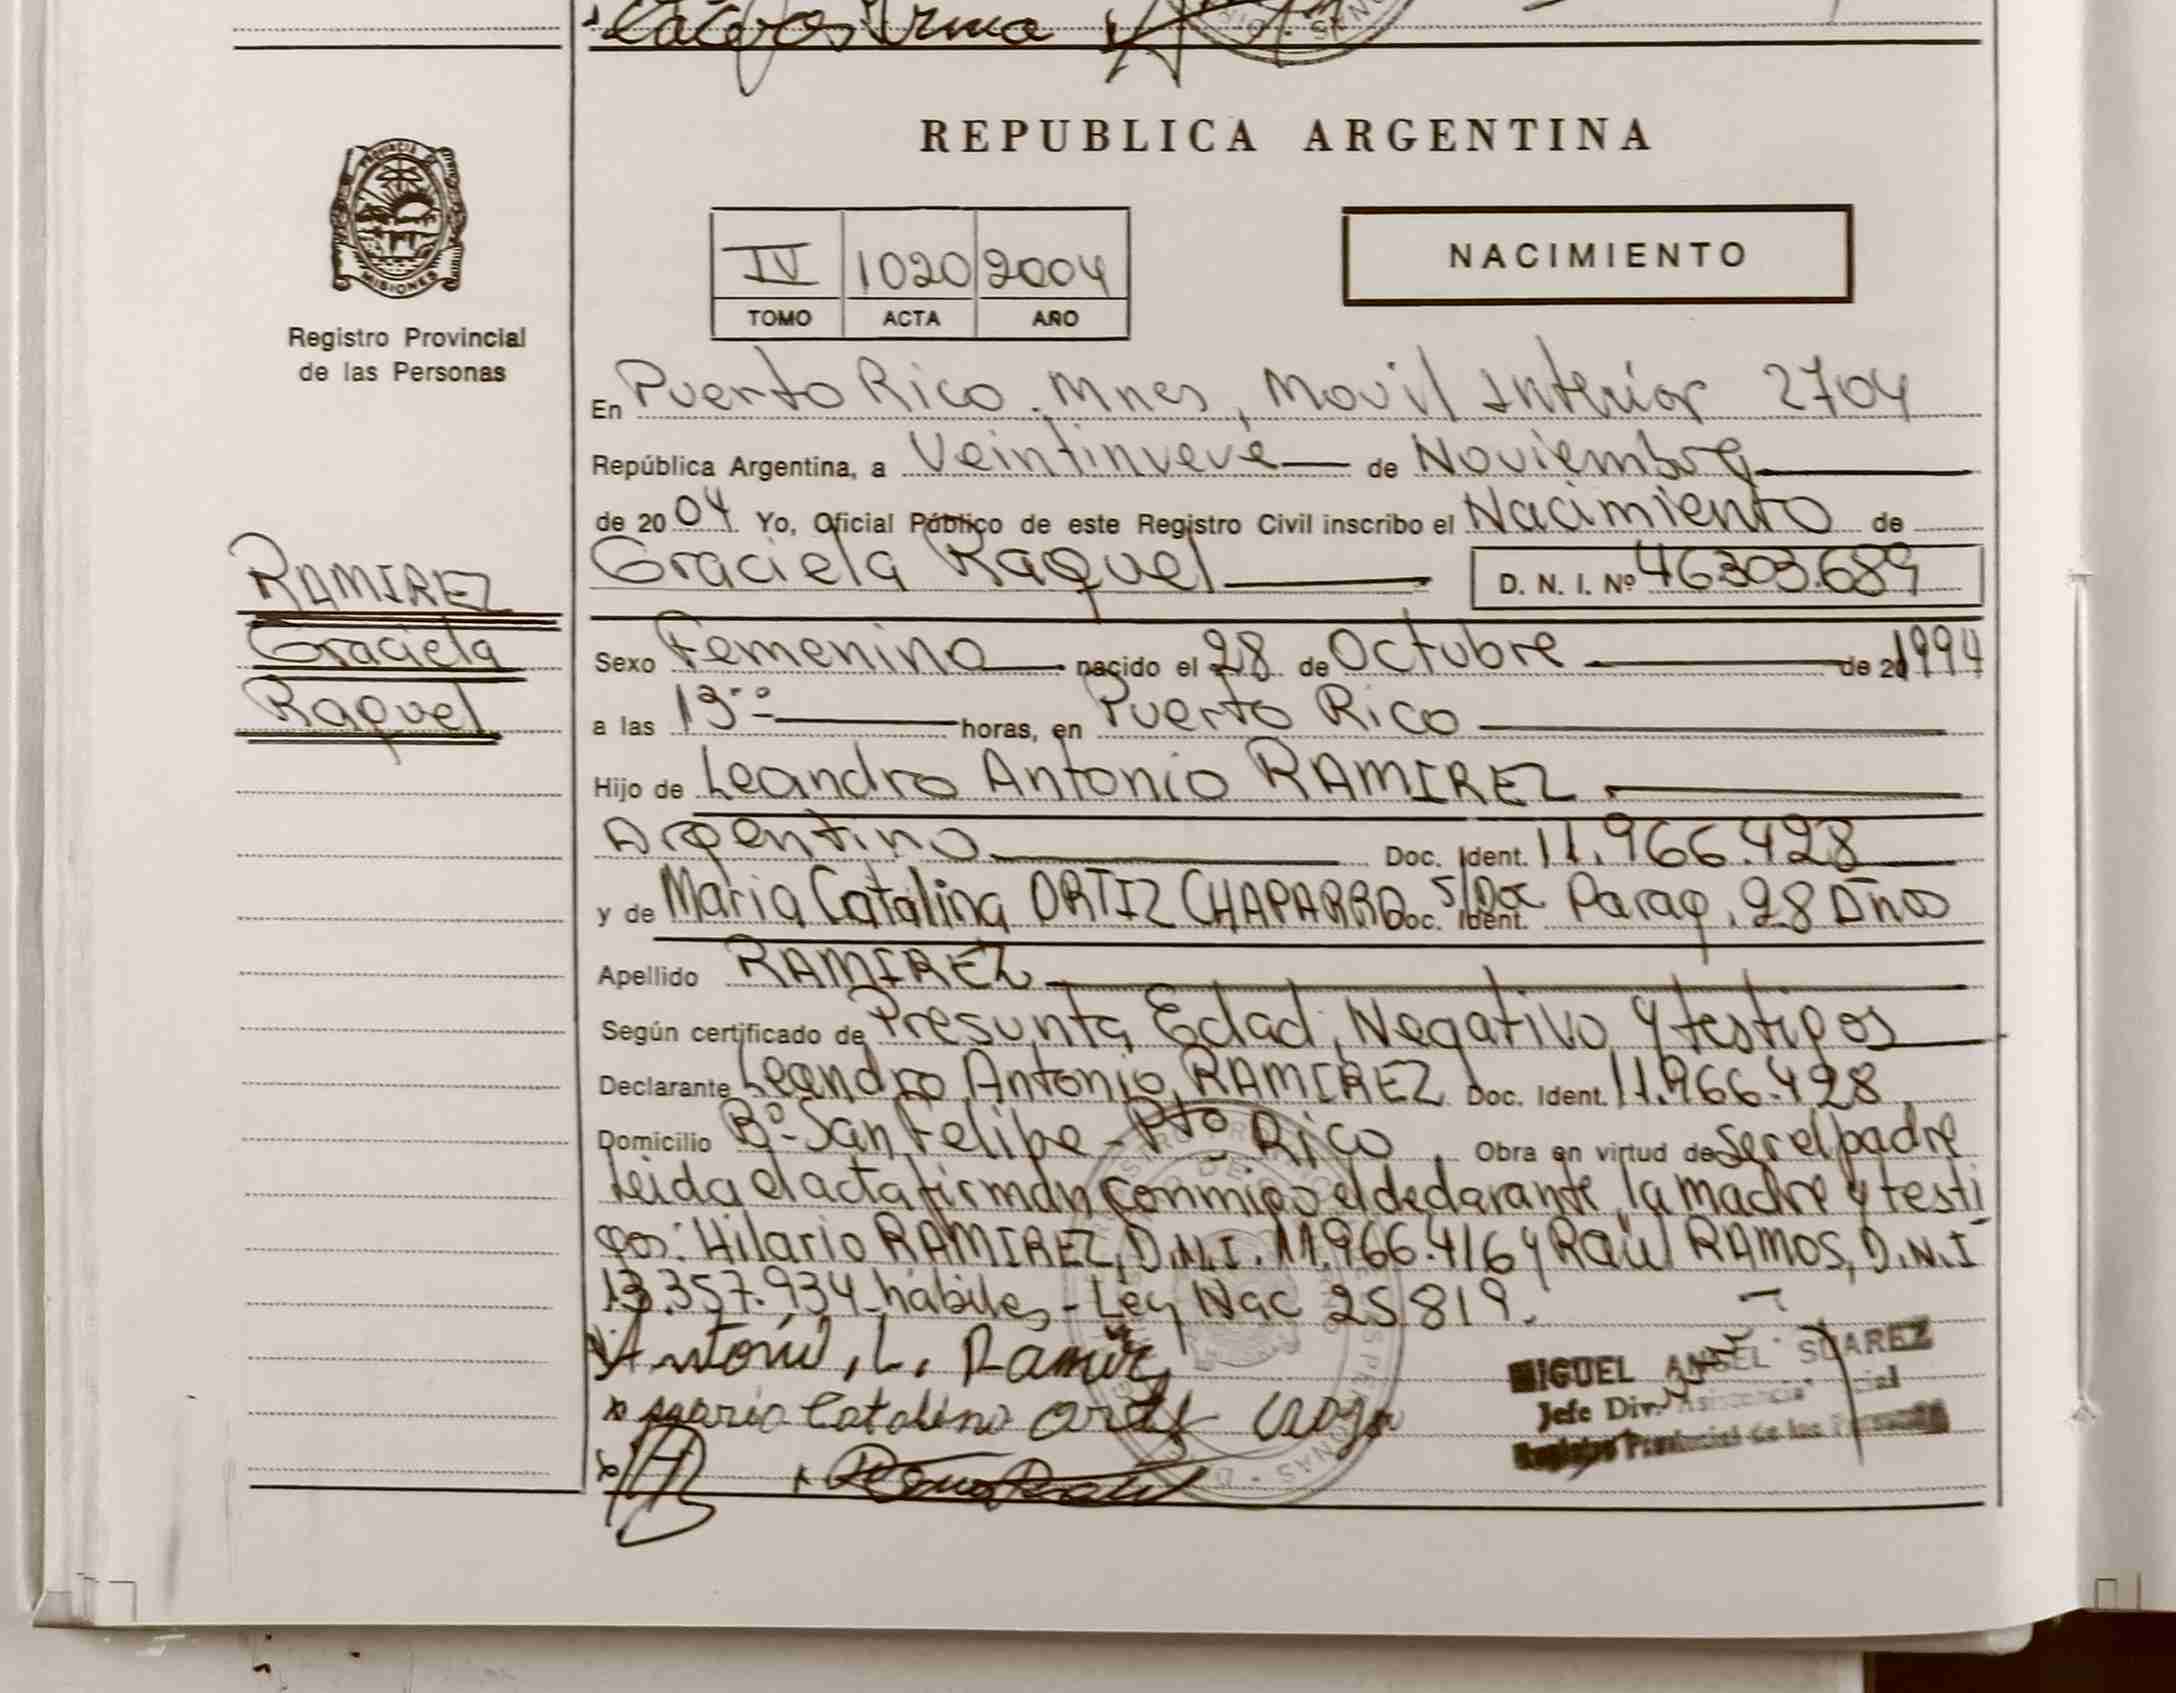 Irma
REPUBLICA ARGENTINA
PROVINCIA DE
MISIONES
Registro Provincial
de las Personas
IV 1020 2004
TOMO ACTA AÑO
NACIMIENTO
En Puerto Rico. Mnes, Movil Interior 2704
República Argentina, a Veintinueve de Noviembre
de 2004 Yo, Oficial Público de este Registro Civil inscribo el Nacimiento de
RAMIREZ
Graciela
Raquel
Graciela Raquel D. N. I. Nº 46303.689
Sexo Femenino nacido el 28 de Octubre de 20 1994
a las 13.º horas, en Puerto Rico
Hijo de Leandro Antonio RAMIREZ
Argentino Doc. Ident. 11.966.428
y de Maria Catalina ORTIZ CHAPARRO Doc. Ident. S/Doc Parag. 28 Años
Apellido RAMIREZ
Según certificado de Presunta Edad, Negativo y testigos
Declarante Leandro Antonio RAMIREZ Doc. Ident. 11.966.428
Domicilio Bº-San Felipe-Pto Rico Obra en virtud de ser el padre
leida el acta firman conmigo el declarante, la madre y testi
gos: Hilario RAMIREZ, D.N.I. 11.966.416 y Raúl RAMOS, D.N.I
13.357.934 hábiles - Ley Nac 25819.
Antonio, L. Ramirez
x Maria Catalina Ortiz
MIGUEL ANGEL SUAREZ
Jefe Div. Asistencia
Registro Provincial de las Personas